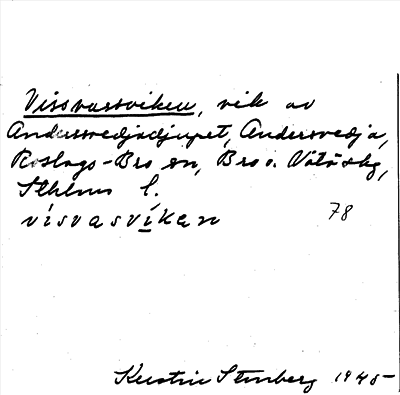 Vissvassviken, vik av
Andersvedjadjupet, Andersvedja,
Roslags-Bro sn, Bro o. Vätö skg,
Sthlms l.
visvasvikan 78
Kerstin Stenberg 1945-